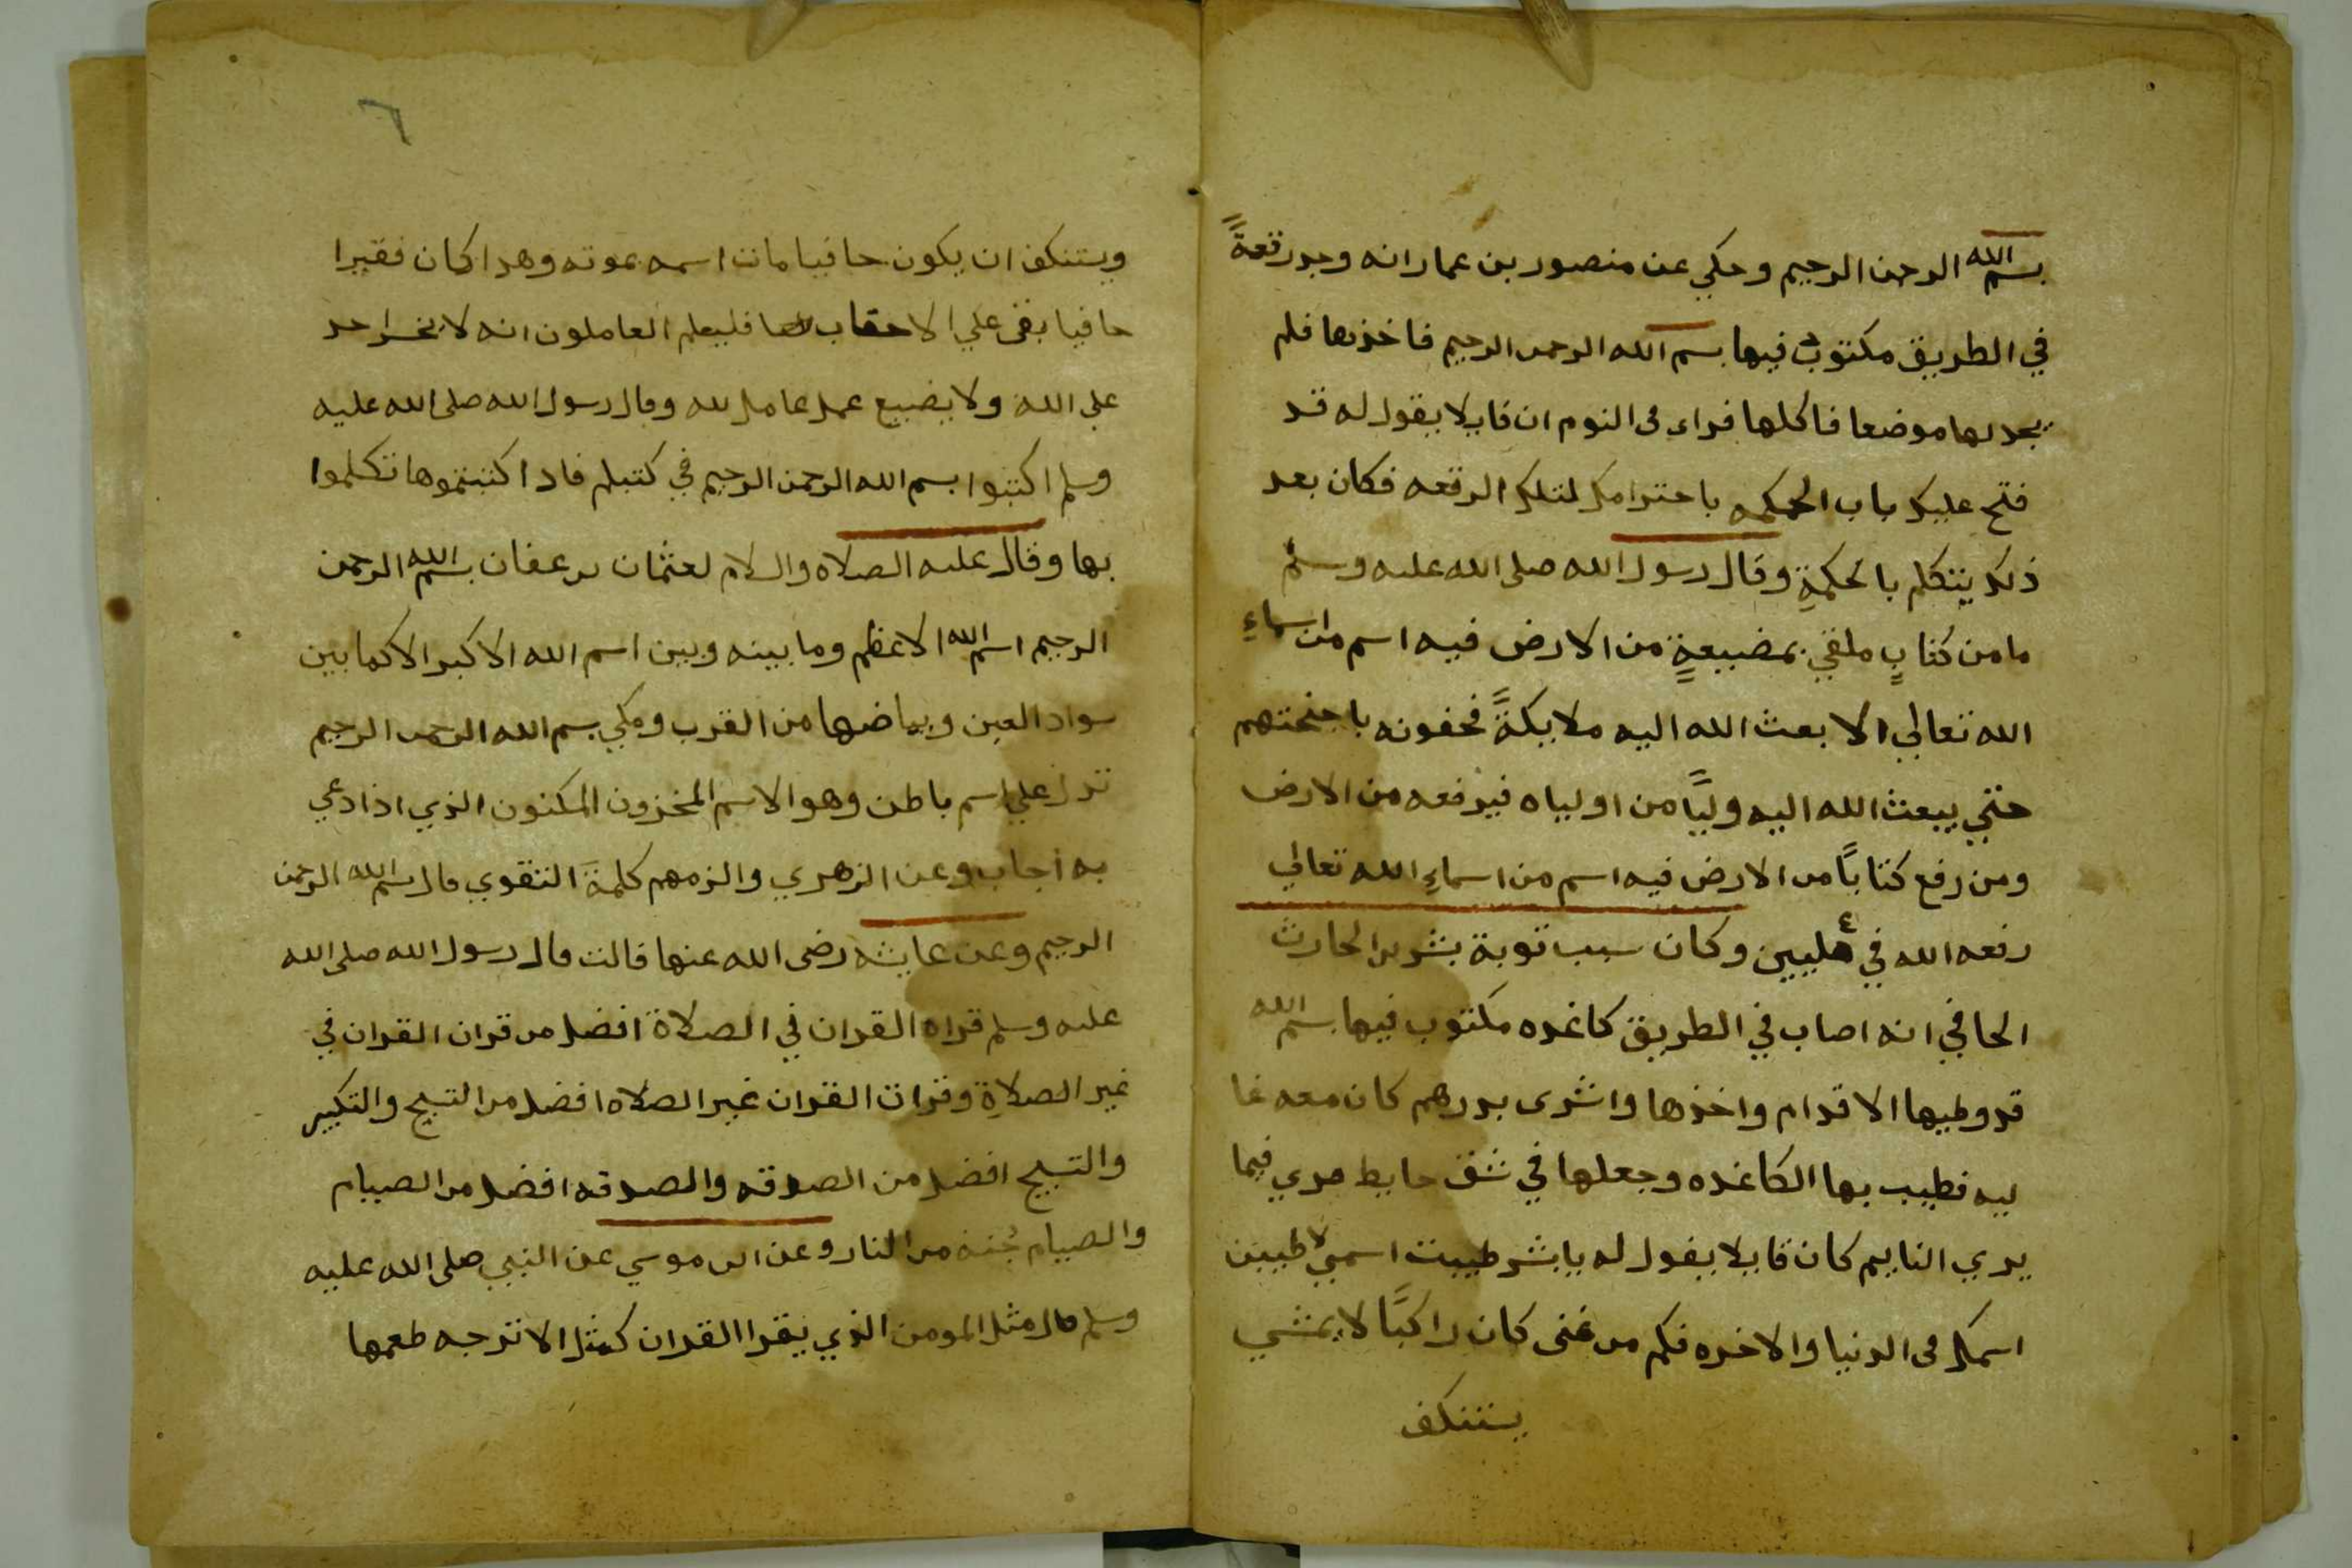 بسم الله الرحمن الرحيم وحكي عن منصور بن عمار انه وجد رقعةً
في الطريق مكتوب فيها بسم الله الرحمن الرحيم فاخذها فلم
يجد لها موضعا فاكلها فراء في النوم ان قايلا يقول له قد
فتح عليك باب الحكمه باحترامك لتلك الرقعه فكان بعد
ذلك يتكلم بالحكمةِ وقال رسول الله صلى الله عليه وسلم
ما من كتابٍ ملقي بمضيعةٍ من الارض فيه اسم من اسماءِ
الله تعالي الا بعث الله اليه ملايكةً تحفونه باجنحتهم
حتي يبعث الله اليه وليًا من اولياه فيرفعه من الارض
ومن رفع كتابًا من الارض فيه اسم من اسماءِ الله تعالي
رفعه الله في عليين وكان سبب توبة بشر بن الحارث
الحافي انه اصاب في الطريق كاغده مكتوب فيها بسم الله
قد وطيها الاقدام واخذها واشرى بدرهم كان معه غا
ليه فطيب بها الكاغده وجعلها في شق حايط فري فيما
يري النايم كان قايلا يقول له يا بشر طيبت اسمي لاطيبن
اسمك في الدنيا والاخره فكم من غنى كان راكبًا لا يمشي
يستنكف
ويستنكف ان يكون حافيا مات اسمه بموته وهذا كان فقيرا
حافيا بقى علي الاحقاب فليعلم العاملون انه لا يخسر احد
على الله ولا يضيع عمل عامل لله وقال رسول الله صلى الله عليه
وسلم اكتبوا بسم الله الرحمن الرحيم في كتبكم فاذا كتبتموها تكلموا
بها وقال عليه الصلاه والسلام لعثمان بن عفان بسم الله الرحمن
الرحيم اسم الله الاعظم وما بينه وبين اسم الله الاكبر الا كما بين
سواد العين وبياضها من القرب وحكي بسم الله الرحمن الرحيم
تدل علي اسم باطن وهو الاسم المخزون المكنون الذي اذا دعي
به اجاب وعن الزهري والزمهم كلمةَ التقوي قال بسم الله الرحمن
الرحيم وعن عايشه رضى الله عنها قالت قال رسول الله صلى الله
عليه وسلم قراه القران في الصلاة افضل من قران القران في
غير الصلاةِ وقرات القران غير الصلاه افضل من التسبيح والتكبير
والتسبيح افضل من الصدقه والصدقه افضل من الصيام
والصيام جُنه من النار وعن ابى موسي عن النبي صلى الله عليه
وسلم قال مثل المومن الذي يقرا القران كمثل الاترجه طعمها
٦